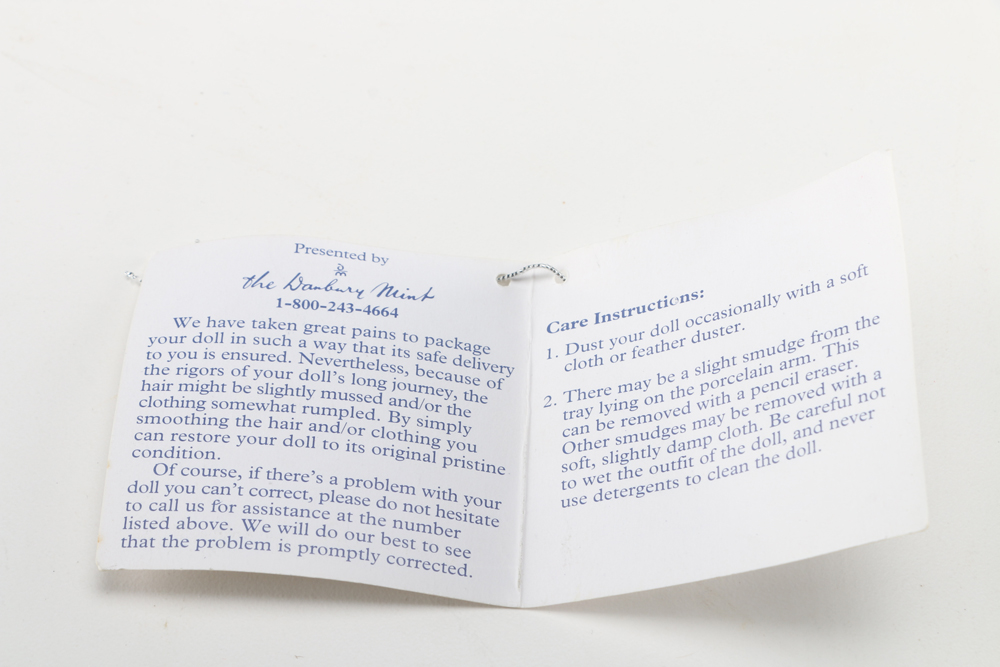 Presented by
DM
the Danbury Mint
1-800-243-4664
We have taken great pains to package
your doll in such a way that its safe delivery
to you is ensured. Nevertheless, because of
the rigors of your doll's long journey, the
hair might be slightly mussed and/or the
clothing somewhat rumpled. By simply
smoothing the hair and/or clothing you
can restore your doll to its original pristine
condition.
Of course, if there's a problem with your
doll you can't correct, please do not hesitate
to call us for assistance at the number
listed above. We will do our best to see
that the problem is promptly corrected.
Care Instructions:
1. Dust your doll occasionally with a soft
cloth or feather duster.
2. There may be a slight smudge from the
tray lying on the porcelain arm. This
can be removed with a pencil eraser.
Other smudges may be removed with a
soft, slightly damp cloth. Be careful not
to wet the outfit of the doll, and never
use detergents to clean the doll.